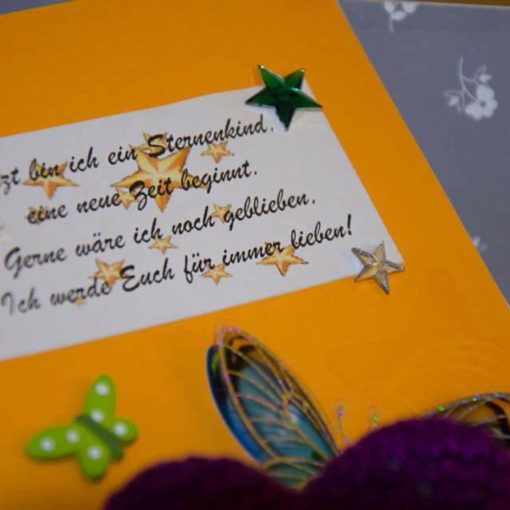 zt bin ich ein Sternenkind.
eine neue Zeit beginnt.
Gerne wäre ich noch geblieben.
Ich werde Euch für immer lieben!